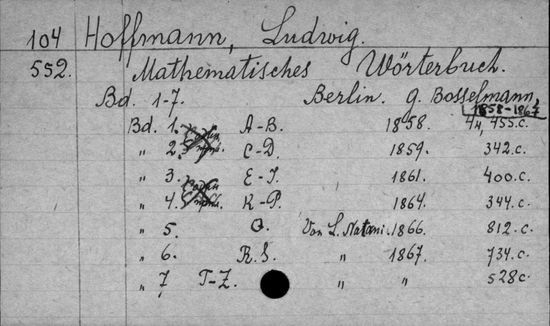 104 Hoffmann, Ludwig.
552. Mathematisches Wörterbuch.
Bd. 1-7. Berlin. G. Bosselmann,
1858-1867
Bd. 1. A-B. 1858. 4н, 455 с.
„ 2. C-D. 1859. 342. с.
„ 3. E-J. 1861. 400. с.
„ 4. K-P. 1864. 344. с.
„ 5. Q. Von L. Natani. 1866. 812. с.
„ 6. R.S. „ 1867. 734. с.
„ 7 T-Z. „ „ 528 с.